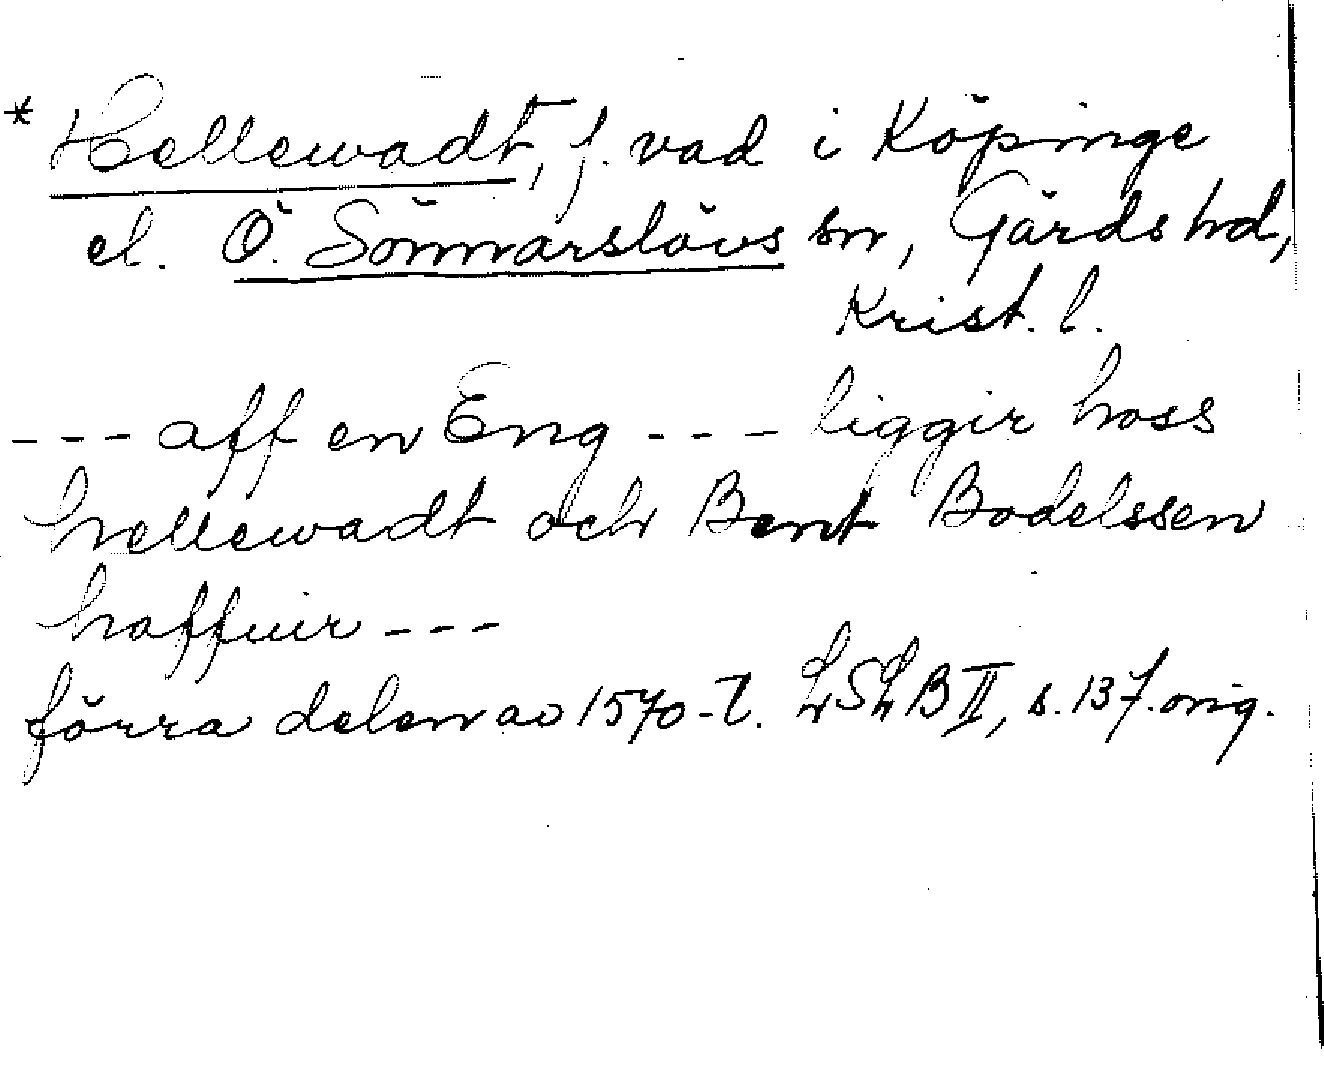 * Hellewadt, f. vad i Köpinge
el. Ö. Sönnarslövs sn, Gärds hd,
Krist. l.
--- aff en Eng --- liggir hoss
hellewadt och Bent Bodelssen
haffuir ---
förra delen av 1570-t. LSLB II, s. 137. orig.